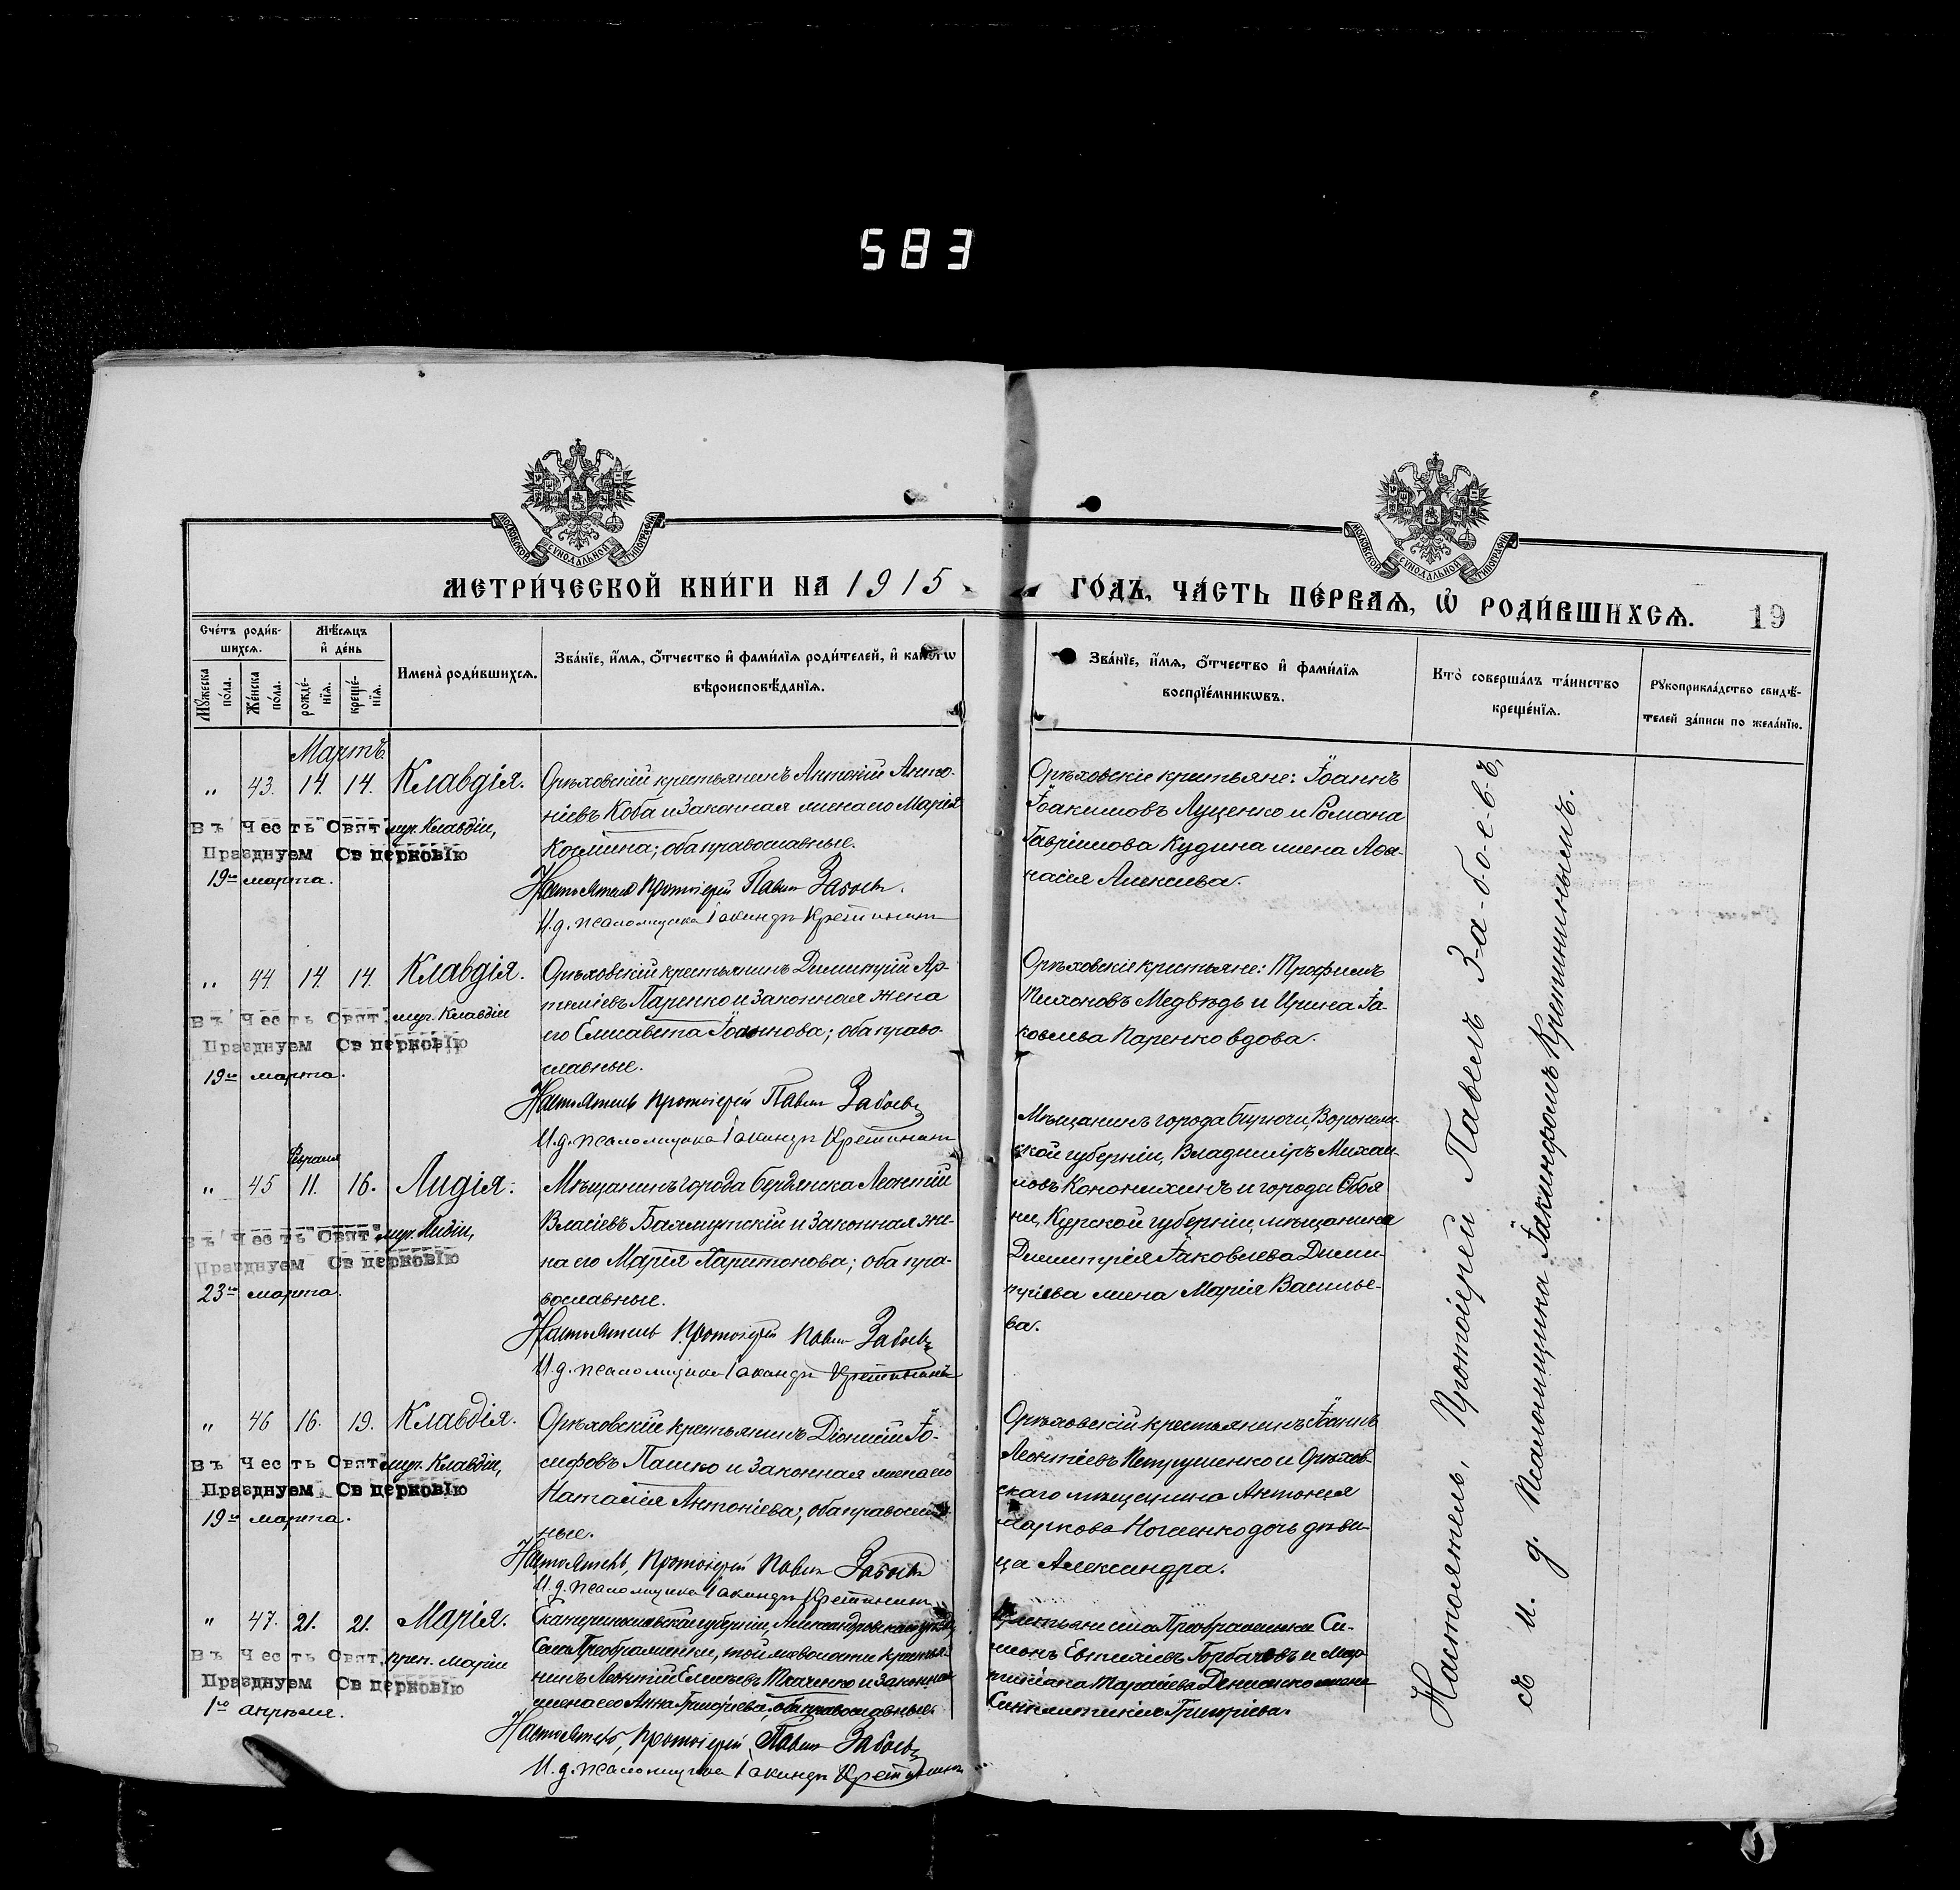 583
МОСКОВСКОЙ СѴНОДАЛЬНОЙ ТИПОГРАФІИ
МОСКОВСКОЙ СѴНОДАЛЬНОЙ ТИПОГРАФІИ
МЕТРИ́ЧЕСКОЙ КНИ́ГИ НА 1915
ГО́ДЪ, ЧА́СТЬ ПЕ́РВАѦ, Ѡ҆ РОДИ́ВШИХСѦ. 19
Сче́тъ роди́в-
шихсѧ.
Мꙋ́жеска по́ла.
Же́нска по́ла.
Мѣ́сѧцъ
и҆ де́нь
рожде́-
нїѧ.
креще́-
нїѧ.
И҆мена̀ роди́вшихсѧ.
Зва́нїе, и҆́мѧ, ѻ҆́тчество и҆ фами́лїѧ роди́телей, и҆ како́гѡ
вѣроисповѣ́данїѧ.
Зва́нїе, и҆́мѧ, ѻ҆́тчество и҆ фами́лїѧ
воспрїе́мникѡвъ.
Кто̀ соверша́лъ та́инство
креще́нїѧ.
Рꙋкоприкла́дство свидѣ́-
телей за́писи по жела́нїю.
Мартъ.
„ 43. 14. 14. Клавдія.
Въ Честь Свят. муч. Клавдіи,
Празднуем Св церковію
19го марта.
Орѣховскій крестьянинъ Антоній Анто-
ніевъ Коба и законная жена его Марія
Космина; оба православные.
Настоятель Протоіерей Павелъ Забоевъ.
И. д. псаломщика Іакинфъ Кретининъ
Орѣховскіе крестьяне: Іоаннъ
Іоакимовъ Луценко и Романа
Гавріилова Кудина жена Афа-
насія Алексіева.
„ 44. 14. 14. Клавдія.
Въ Честь Свят. муч. Клавдіи
Празднуем Св церковію
19го марта.
Орѣховскій крестьянинъ Димитрій Ар-
теміевъ Паренко и законная жена
его Елисавета Іоаннова; оба право-
славные.
Настоятель Протоіерей Павелъ Забоевъ
И. д. псаломщика Іакинфъ Кретининъ
Орѣховскіе крестьяне: Трофимъ
Тихоновъ Медвѣдь и Ирина Іа-
ковлева Паренко вдова.
Февраля
„ 45 11. 16. Лидія.
Въ Честь Свят. муч. Лидіи,
Празднуем Св церковію
23го марта.
Мѣщанинъ города Бердянска Леонтій
Власіевъ Бахмутскій и законная же-
на его Марія Харитонова; оба пра-
вославные.
Настоятель Протоіерей Павелъ Забоевъ
И. д. псаломщика Іакинфъ Кретининъ
Мѣщанинъ города Бирючи, Воронеж-
ской губерніи, Владиміръ Михаи-
ловъ Кононихинъ и города Обоя-
ни, Курской губерніи, мѣщанина
Димитрія Іаковлева Дими-
тріева жена Марія Василье-
ва.
„ 46 16. 19. Клавдія.
Въ Честь Свят. муч. Клавдіи,
Празднуем Св церковію
19го марта.
Орѣховскій крестьянинъ Діонисій Іо-
сифовъ Пашко и законная жена его
Наталія Антоніева; оба православ-
ные.
Настоятель, Протоіерей Павелъ Забоевъ
И. д. псаломщика Іакинфъ Кретининъ
Орѣховскій крестьянинъ Іоаннъ
Леонтіевъ Петрушенко и Орѣхов-
скаго мѣщанина Антонія
Маркова дочь дѣви-
ца Александра.
„ 47. 21. 21. Марія.
Въ Честь Свят. преп. Маріи
Празднуем Св церковію
1го апрѣля.
Екатеринославской губерніи, Александровскаго уѣзда,
Села Преображенки, той же волости крестья-
нинъ Леонтій Елисеевъ Ткаченко и законная
жена его Анна Григоріева, оба православные.
Настоятель, Протоіерей Павелъ Забоевъ
И. д. псаломщика Іакинфъ Кретининъ
Крестьяне села Преображенки Си-
меонъ Евтихіевъ Горбачовъ и
Тарасіева жена
Синклитикія Григоріева.
Настоятель, Протоіерей Павелъ З-а-б-о-е-в-ъ,
съ и. д. псаломщика Іакинфомъ Кретининымъ.